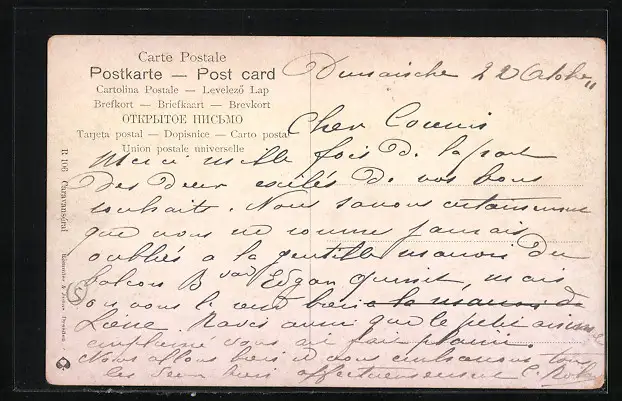 Carte Postale
Postkarte — Post card
Cartolina Postale — Levelező Lap
Brefkort — Briefkaart — Brevkort
ОТКРЫТОЕ ПИСЬМО
Tarjeta postal — Dopisnice — Carto postal
Union postale universelle
R 106 Caravansérai
Dimanche 22 Octobre
Cher Cousin
Merci mille fois de la part
des deux exilés de vos bons
souhaits. Nous savons certainement
que nous ne sommes jamais
oubliés a la gentille maison du
balcon Bvar Edgar Quinet, mais
on vous le rend bien a la maison de
Laine. Ravis aussi que le petit
vous ait fait plaisir.
Nous allons bien et vous embrassons tous
les deux bien affectueusement